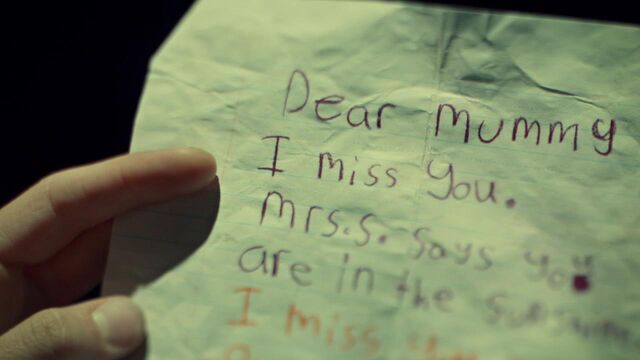 Dear Mummy
I miss you.
Mrs.S. says you
are in the sunshine
I miss you